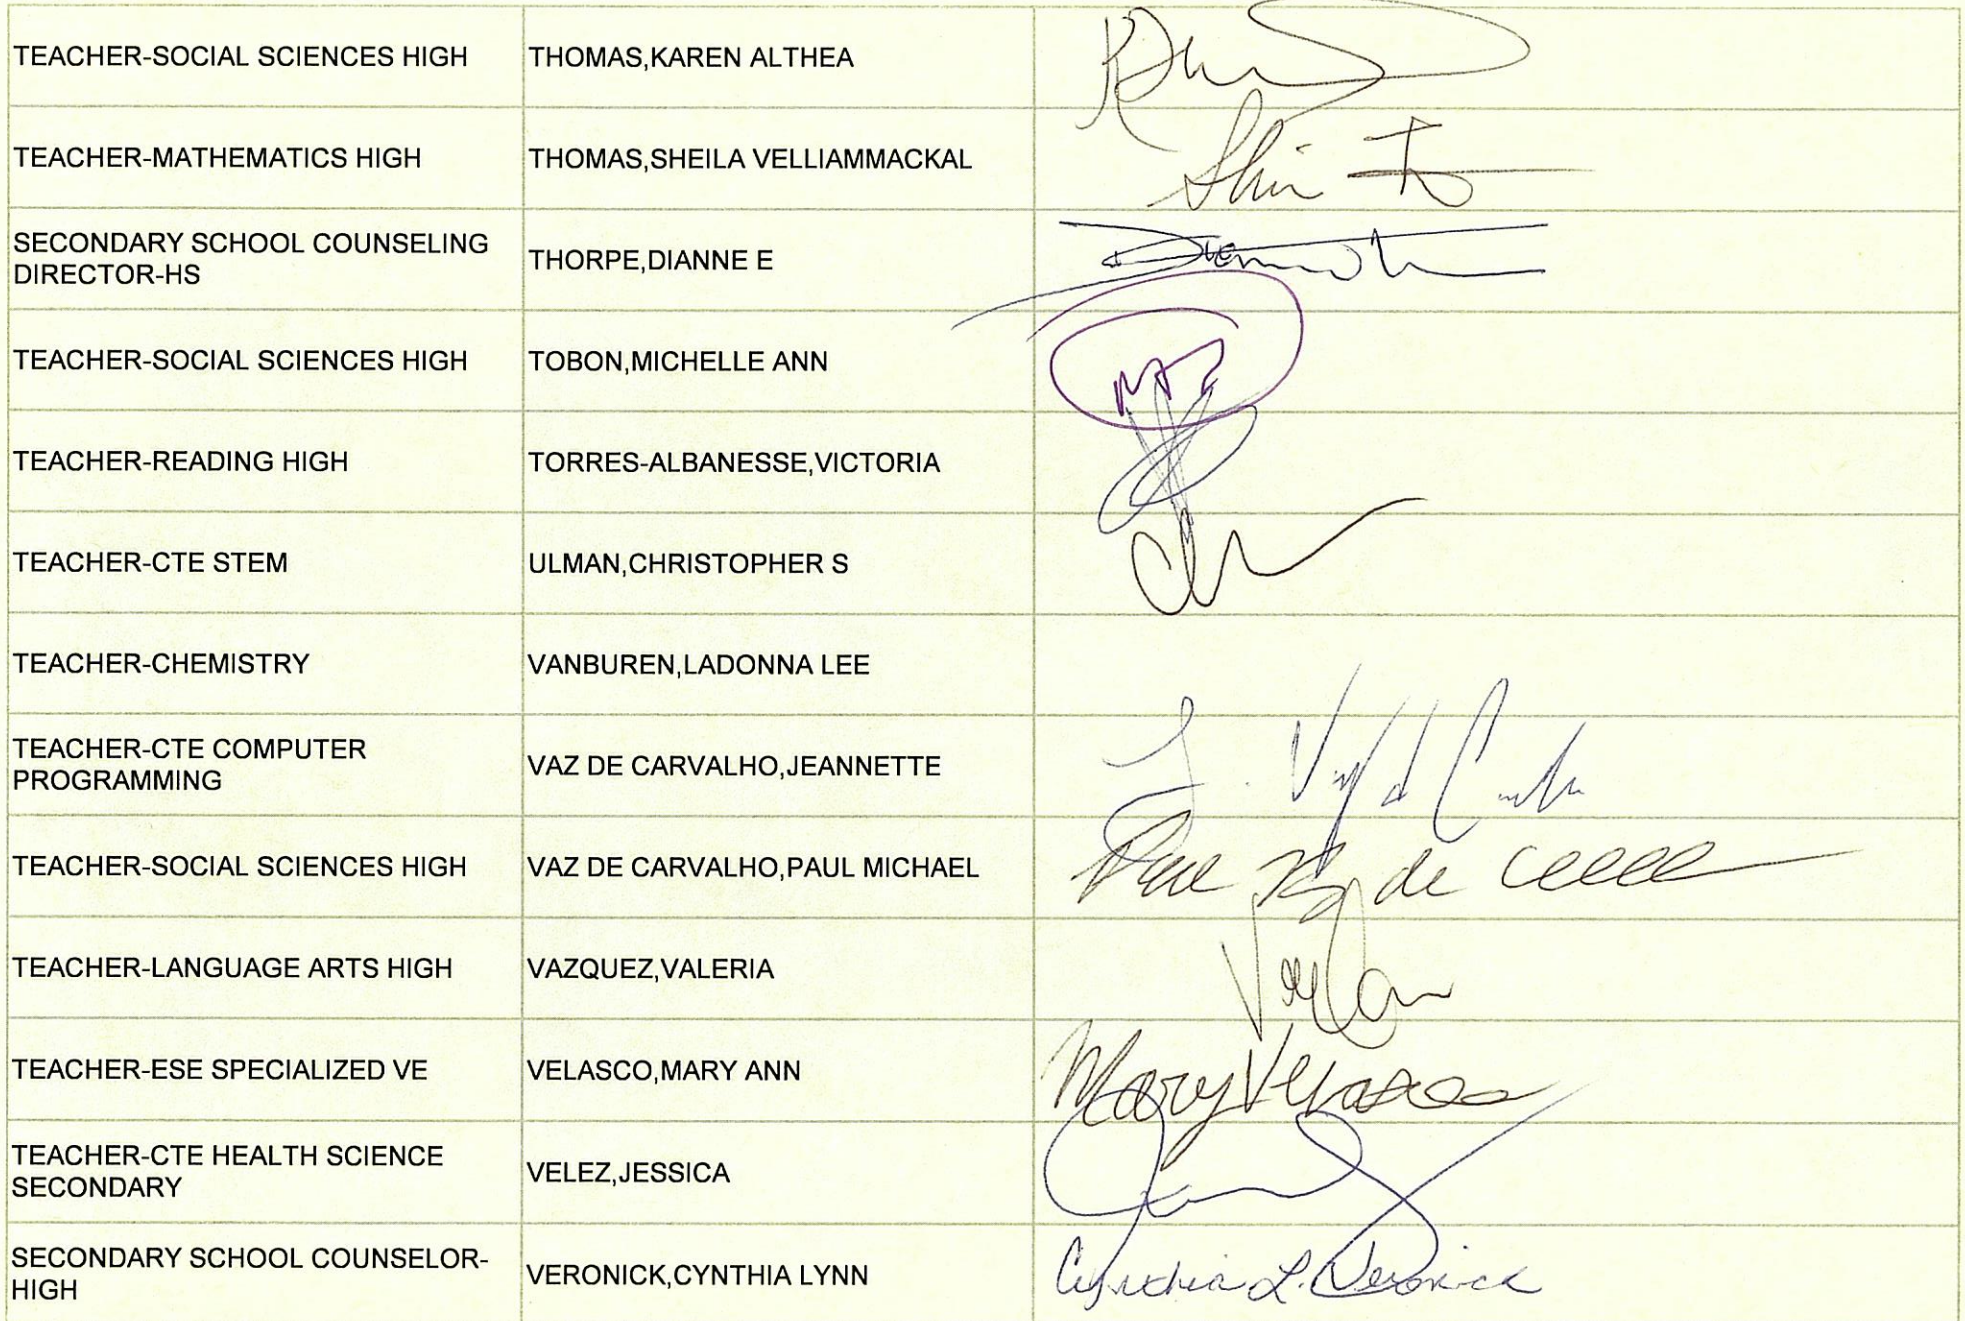 TEACHER-SOCIAL SCIENCES HIGH THOMAS,KAREN ALTHEA
TEACHER-MATHEMATICS HIGH THOMAS,SHEILA VELLIAMMACKAL
SECONDARY SCHOOL COUNSELING
DIRECTOR-HS THORPE,DIANNE E
TEACHER-SOCIAL SCIENCES HIGH TOBON,MICHELLE ANN
TEACHER-READING HIGH TORRES-ALBANESSE,VICTORIA
TEACHER-CTE STEM ULMAN,CHRISTOPHER S
TEACHER-CHEMISTRY VANBUREN,LADONNA LEE
TEACHER-CTE COMPUTER
PROGRAMMING VAZ DE CARVALHO,JEANNETTE
TEACHER-SOCIAL SCIENCES HIGH VAZ DE CARVALHO,PAUL MICHAEL
TEACHER-LANGUAGE ARTS HIGH VAZQUEZ,VALERIA
TEACHER-ESE SPECIALIZED VE VELASCO,MARY ANN Mary Velasco
TEACHER-CTE HEALTH SCIENCE
SECONDARY VELEZ,JESSICA
SECONDARY SCHOOL COUNSELOR-
HIGH VERONICK,CYNTHIA LYNN Cynthia L. Veronick